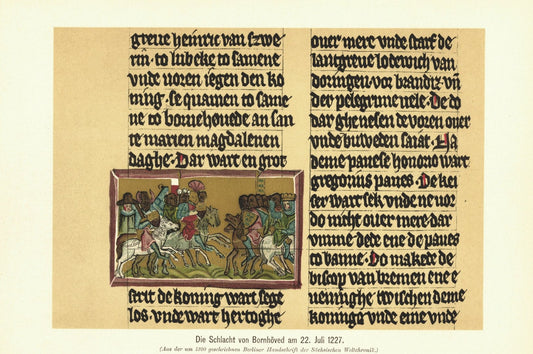 greue heinric van szwe
rin · to lubeke to samene
vnde voren iegen den ko
ning · se quamen to same
ne to bornehouede an san
te marien magdalenen
daghe · Dar wart en grot
strit de koning wart sege
los · vnde wart hertoghe
ouer mere vnde starf de
lantgreue lodewich van
doringen · vor brandiz · vn̄
der pelegrime vele · De do
dar ghenesen de voren ouer
vnde
Na
deme pauese honorio wart
gregorius paues · De kei
ser wart sek vnde ne vor
do nicht ouer mere · dar
vmme dede ene de paues
to banne · Do makede de
biscop van bremen ene e
ueninghe twischen deme
koninga vnde eme vnde
Die Schlacht von Bornhöved am 22. Juli 1227.
(Aus der um 1300 geschriebnen Berliner Handschrift der Sächsischen Weltchronik.)